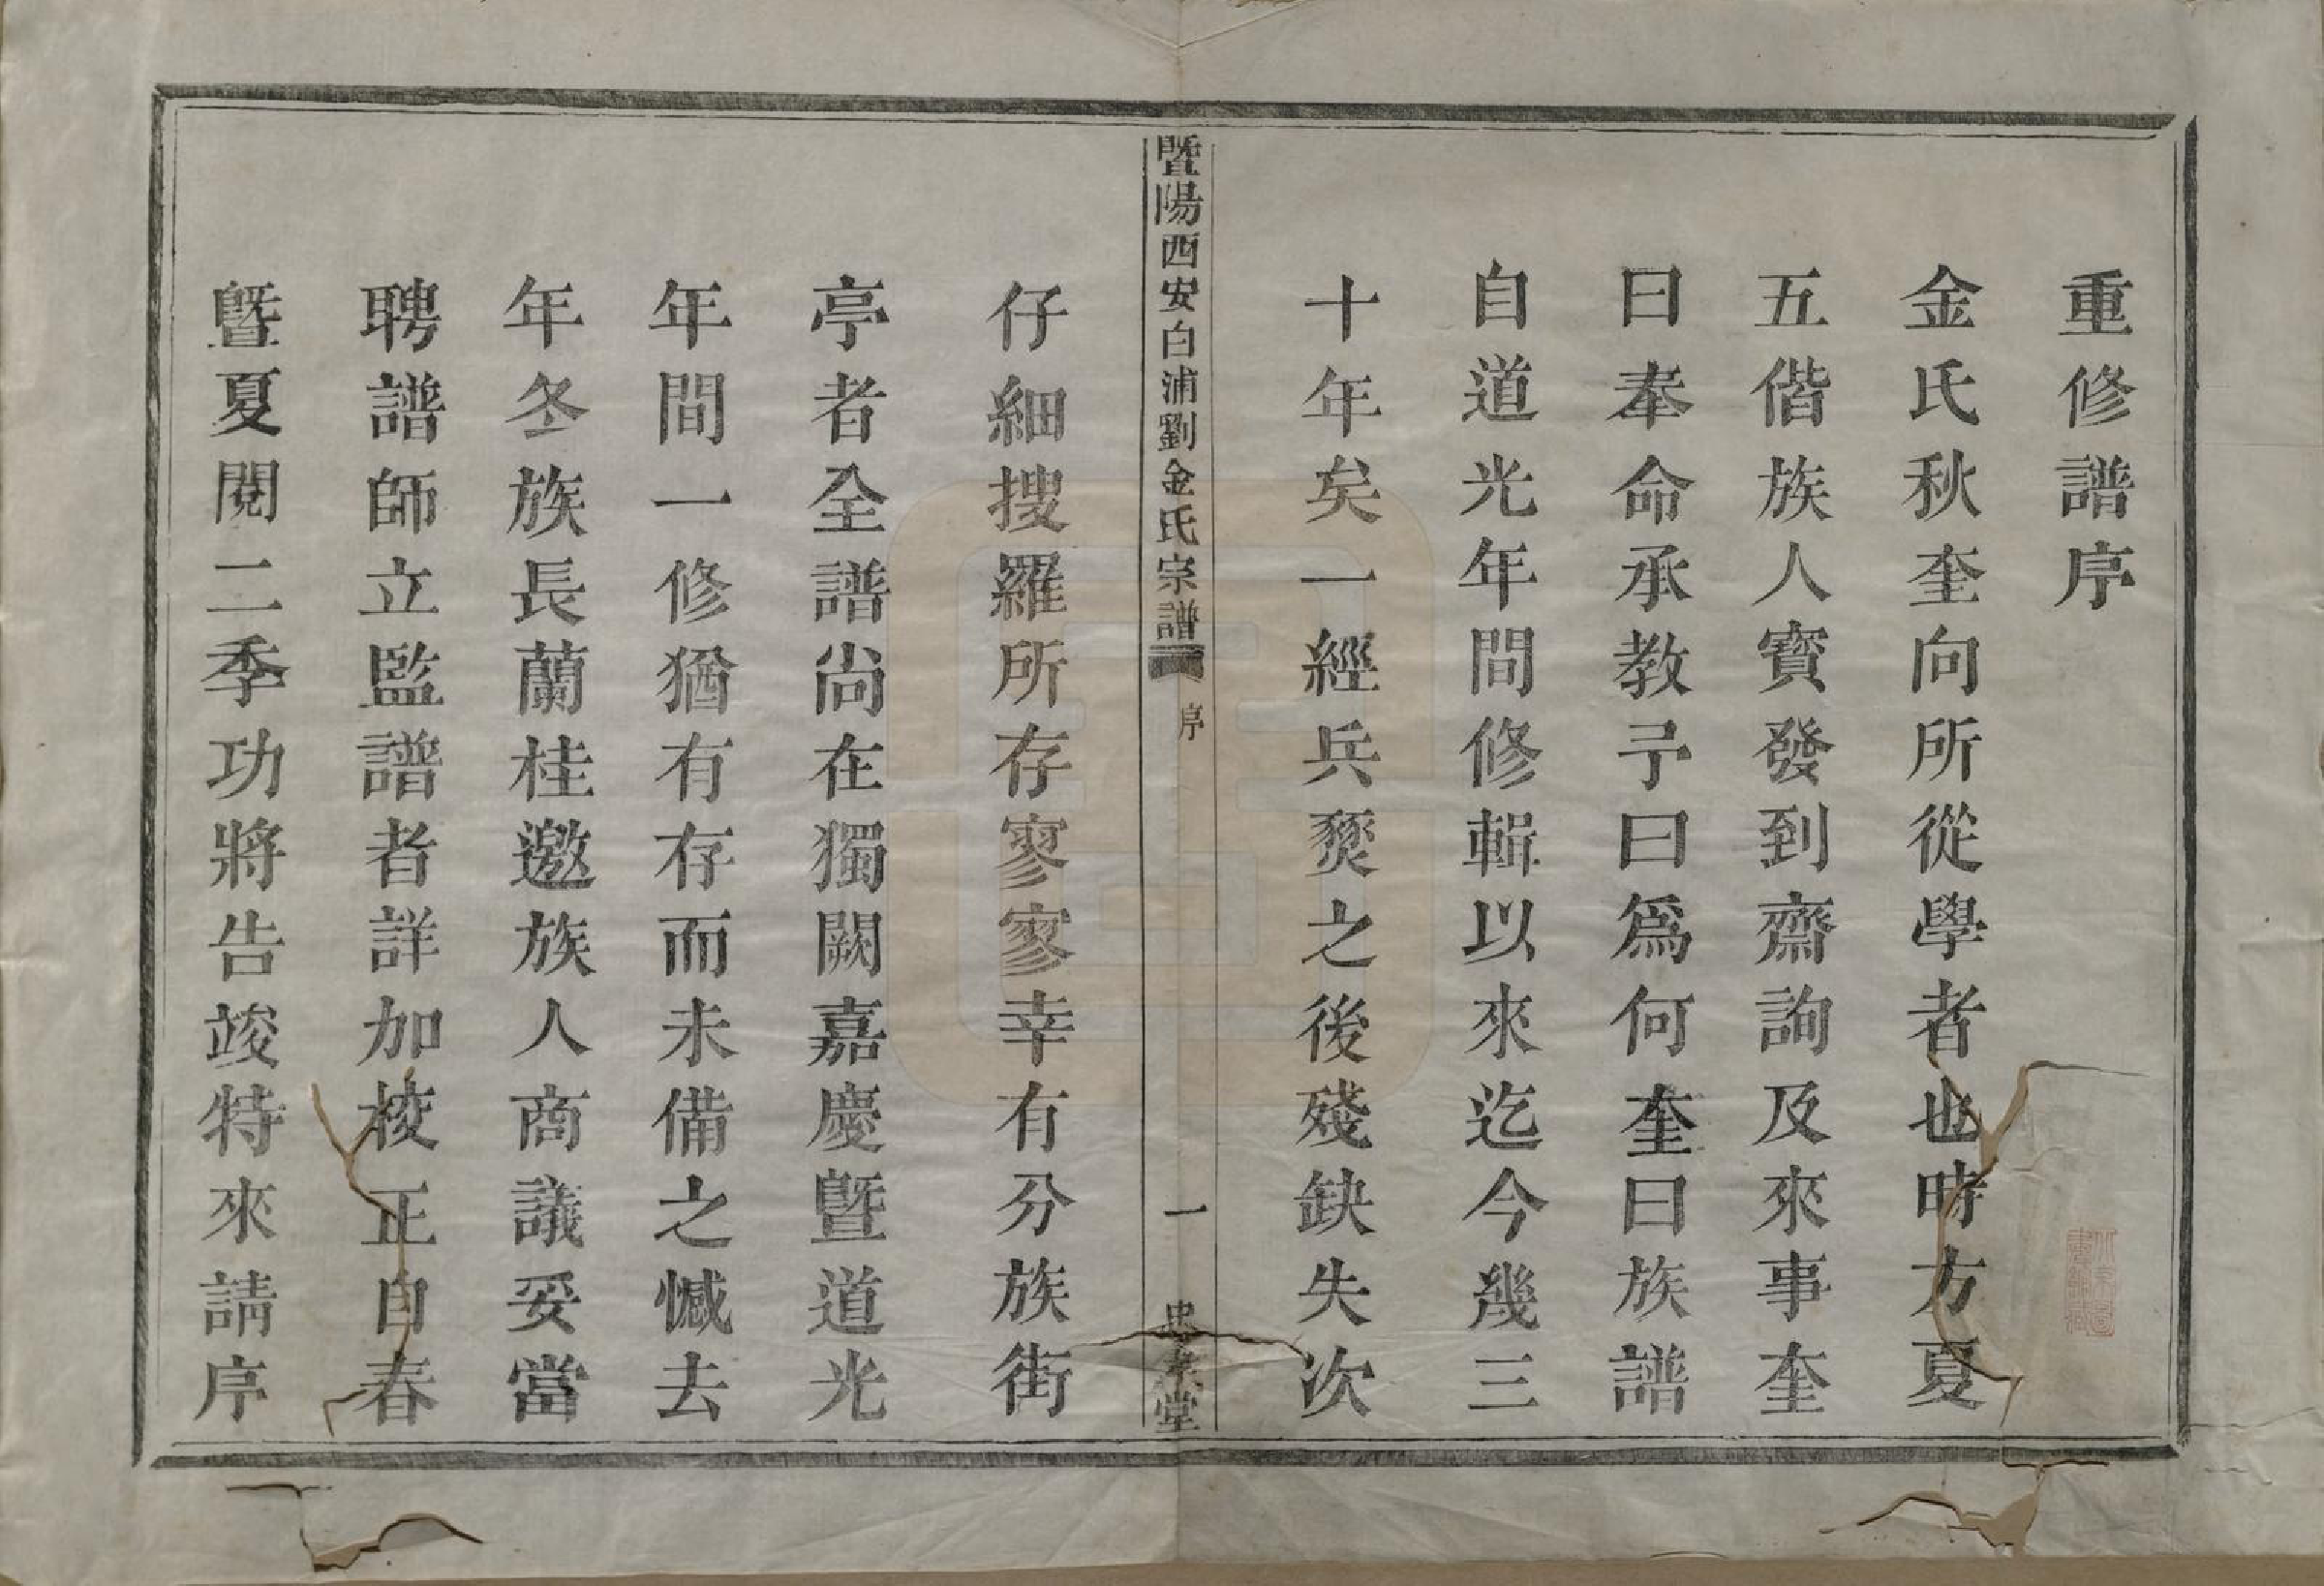 重修譜序
金氏秋奎向所從學者也時方夏
五偕族人寳發到齋詢及來事奎
曰奉命承教予曰爲何奎曰族譜
自道光年間修輯以來迄今幾三
十年矣一經兵燹之後殘缺失次
暨陽西安白浦劉金氏宗譜 序 一 忠孝堂
仔細搜羅所存寥寥幸有分族街
亭者全譜尚在獨闕嘉慶暨道光
年間一修猶有存而未備之憾去
年冬族長蘭桂邀族人商議妥當
聘譜師立監譜者詳加校正自春
暨夏閱二季功將告竣特來請序